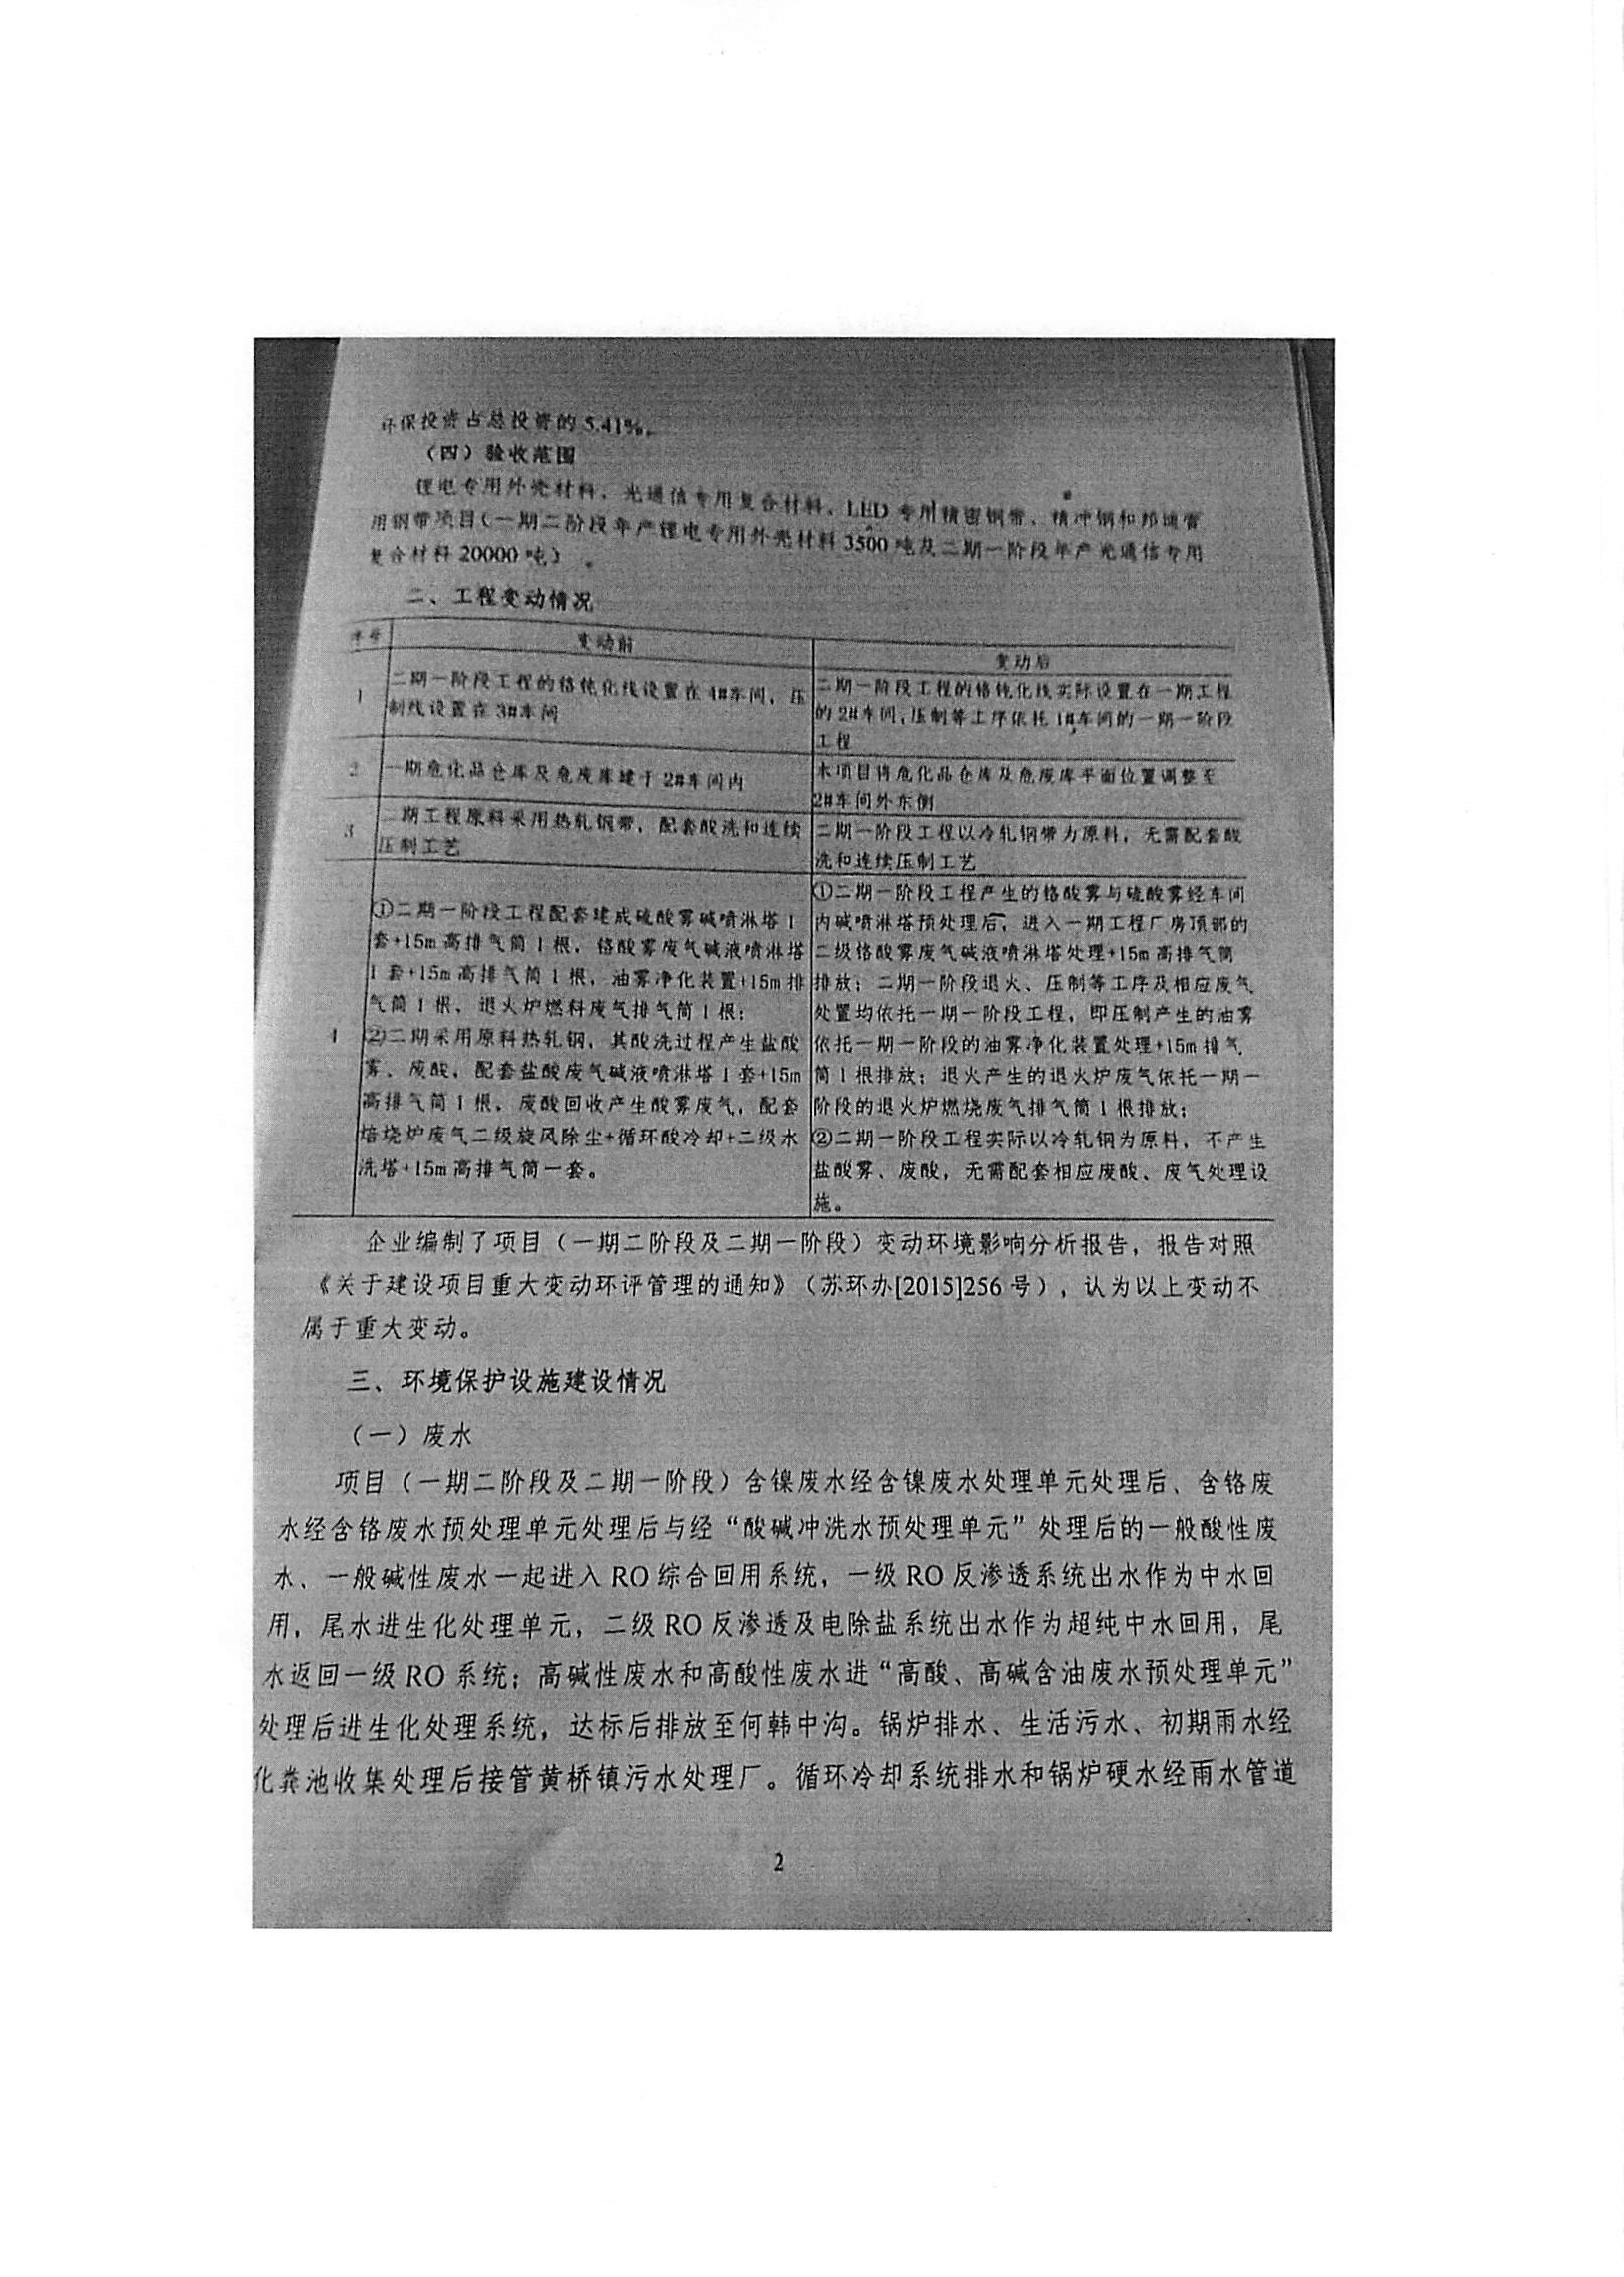 环保投资占总投资的 5.41%。
（四）验收范围
锂电专用外壳材料、光通信专用复合材料、LED 专用精密钢带、精冲钢和邦迪管
用钢带项目（一期二阶段年产锂电专用外壳材料 3500 吨及二期一阶段年产光通信专用
复合材料 20000 吨）。
二、工程变动情况
序号 变动前 变动后
1
二期一阶段工程的铬钝化线设置在 4#车间，压
制线设置在 3#车间
二期一阶段工程的铬钝化线实际设置在一期工程
的 2#车间，压制等工序依托 1#车间的一期一阶段
工程
2
一期危化品仓库及危废库建于 2#车间内
本项目将危化品仓库及危废库平面位置调整至
2#车间外东侧
3
二期工程原料采用热轧钢带，配套酸洗和连续
压制工艺
二期一阶段工程以冷轧钢带为原料，无需配套酸
洗和连续压制工艺
4
①二期一阶段工程配套建成硫酸雾碱喷淋塔 1
套+15m 高排气筒 1 根，铬酸雾废气碱液喷淋塔
1 套+15m 高排气筒 1 根，油雾净化装置+15m 排
气筒 1 根，退火炉燃料废气排气筒 1 根；
②二期采用原料热轧钢，其酸洗过程产生盐酸
雾、废酸，配套盐酸废气碱液喷淋塔 1 套+15m
高排气筒 1 根，废酸回收产生酸雾废气，配套
焙烧炉废气二级旋风除尘+循环酸冷却+二级水
洗塔+15m 高排气筒一套。
①二期一阶段工程产生的铬酸雾与硫酸雾经车间
内碱喷淋塔预处理后，进入一期工程厂房顶部的
二级铬酸雾废气碱液喷淋塔处理+15m 高排气筒
排放；二期一阶段退火、压制等工序及相应废气
处置均依托一期一阶段工程，即压制产生的油雾
依托一期一阶段的油雾净化装置处理+15m 排气
筒 1 根排放；退火产生的退火炉废气依托一期一
阶段的退火炉燃烧废气排气筒 1 根排放；
②二期一阶段工程实际以冷轧钢为原料，不产生
盐酸雾、废酸，无需配套相应废酸、废气处理设
施。
企业编制了项目（一期二阶段及二期一阶段）变动环境影响分析报告，报告对照
《关于建设项目重大变动环评管理的通知》（苏环办[2015]256 号），认为以上变动不
属于重大变动。
三、环境保护设施建设情况
（一）废水
项目（一期二阶段及二期一阶段）含镍废水经含镍废水处理单元处理后、含铬废
水经含铬废水预处理单元处理后与经“酸碱冲洗水预处理单元”处理后的一般酸性废
水、一般碱性废水一起进入 RO 综合回用系统，一级 RO 反渗透系统出水作为中水回
用，尾水进生化处理单元，二级 RO 反渗透及电除盐系统出水作为超纯中水回用，尾
水返回一级 RO 系统；高碱性废水和高酸性废水进“高酸、高碱含油废水预处理单元”
处理后进生化处理系统，达标后排放至何韩中沟。锅炉排水、生活污水、初期雨水经
化粪池收集处理后接管黄桥镇污水处理厂。循环冷却系统排水和锅炉硬水经雨水管道
2